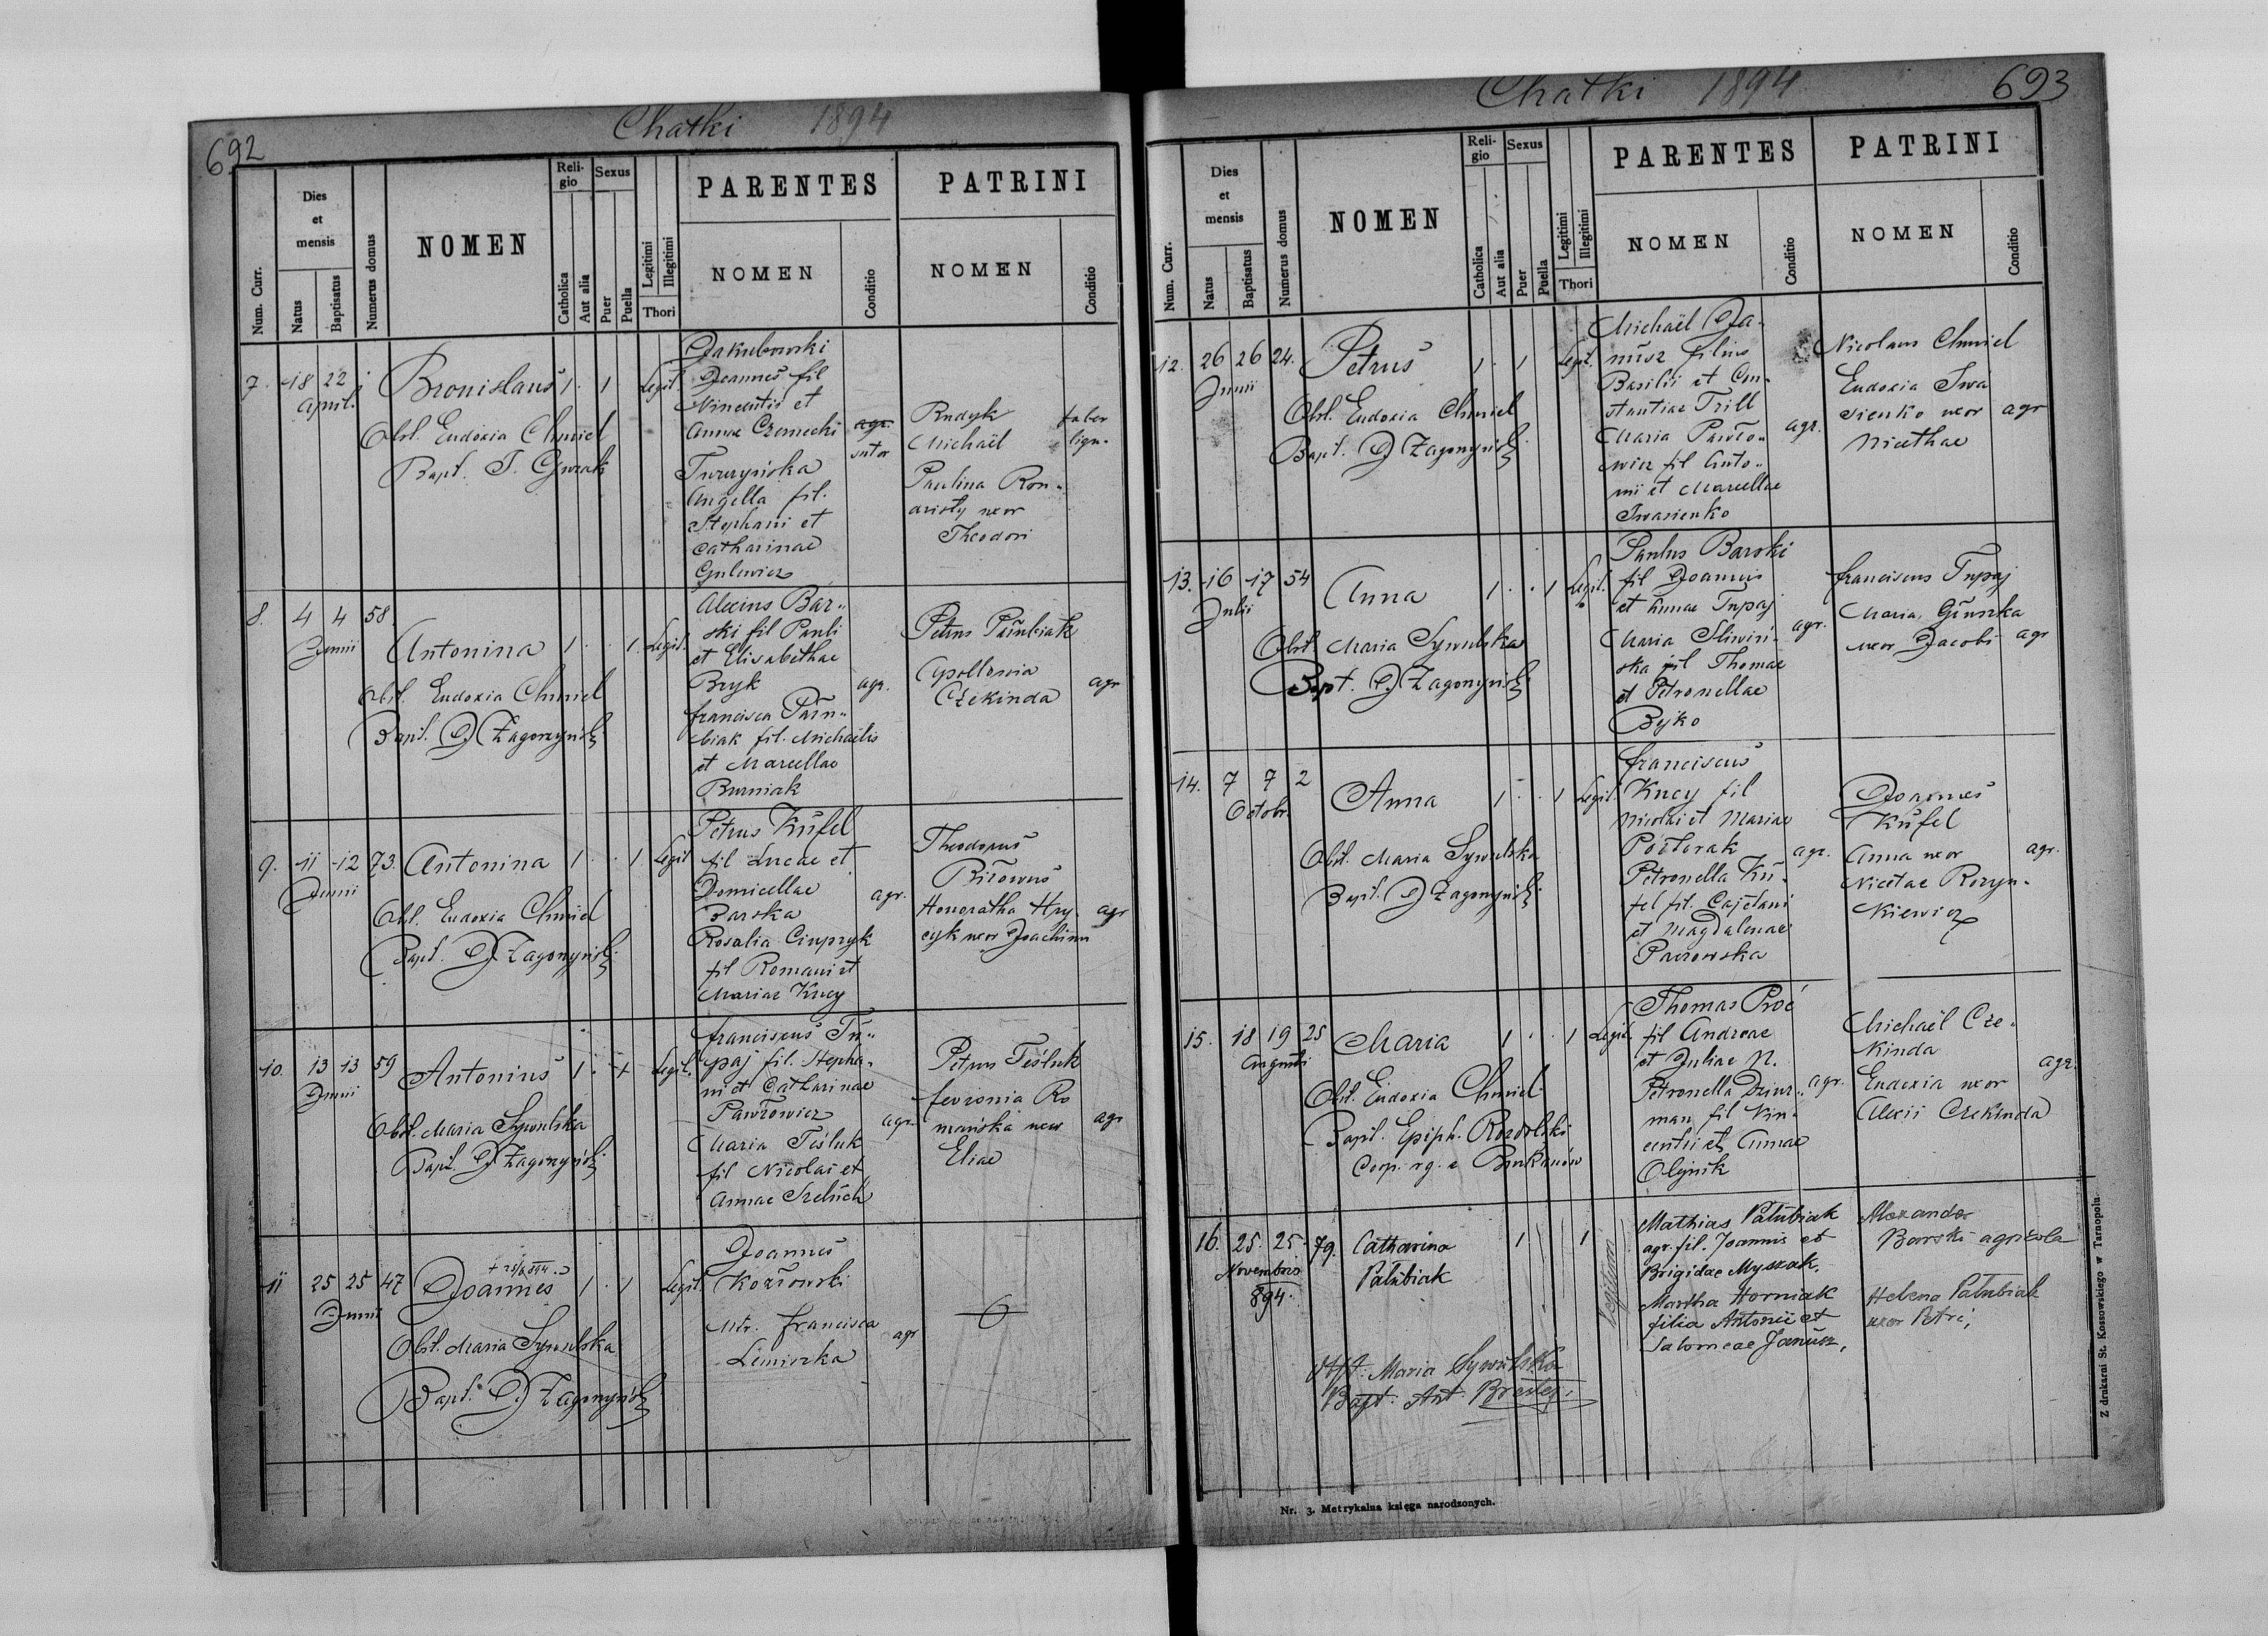 692
Chatki 1894
Num. Curr.
Dies et mensis
Natus
Baptisatus
Numerus domus
NOMEN
Religio
Catholica
Aut alia
Sexus
Puer
Puella
Legitimi
Illegitimi
Thori
PARENTES
NOMEN
Conditio
PATRINI
NOMEN
Conditio
7. 18 22 Bronislaus 1 . 1 Legit.
April.
Obst. Eudoxia Chmiel
Bapt. T. Gwzak
Jakubowski
Joannes fil
Vincentii et
Annae Czernecki
agr.
sutor
Twerzyńska
Angella fil.
Stephani et
Catharinae
Gulewicz
Rudyk
Michaël
faber
lign.
Paulina Ron-
aristy uxor
Theodori
8. 4 4 58. Antonina 1 . . 1. Legit.
Junii
Obst. Eudoxia Chmiel
Bapt. D Zagonyński
Alexius Bar-
ski fil Pauli
et Elisabethae
Bryk
agr.
Francisca Pału-
biak fil. Michaëlis
et Marcellae
Burniak
Petrus Pałubiak
Apollonia
Czekinda
agr
9. 11 12 73. Antonina 1 . . 1. Legit
Junii
Obst. Eudoxia Chmiel
Bapt. D Zagonyński
Petrus Kufel
fil Lucae et
Domicellae
Barska
agr.
Rosalia Ciupryk
fil Romani et
Mariae Kucy
Theodorus
Biłowus
Honoratha Hry-
cyk uxor Joachimi
agr
10. 13 13 59 Antonius 1 . + Legit.
Junii
Obst. Maria Sywulska
Bapt. D Zagonyński
Franciscus Tu-
paj fil. Stepha-
ni et Catharinae
Pawłowicz
agr.
Maria Teśluk
fil Nicolai et
Annae Szeluch
Petrus Teśluk
Fevronia Ro
mańska uxor
Eliae
agr
11 25 25 47 Joannes 1 . 1 Legit.
+ 25/6 894
Junii
Obst. Maria Sywulska
Bapt. D Zagonyński
Joannes
Kozłowski
Mtr. Francisca
Lemiszka
agr
693
Chatki 1894
Num. Curr.
Dies et mensis
Natus
Baptisatus
Numerus domus
NOMEN
Religio
Catholica
Aut alia
Sexus
Puer
Puella
Legitimi
Illegitimi
Thori
PARENTES
NOMEN
Conditio
PATRINI
NOMEN
Conditio
12. 26 26 24. Petrus 1 . 1 Legit.
Junii
Obst. Eudoxia Chmiel
Bapt. D Zagonyński
Michaël Ja-
nusz filius
Basilii et Con-
stantiae Trill
Maria Pawło-
wicz fil Anto-
nii et Marcellae
Iwasienko
agr.
Nicolaus Chmiel
Eudoxia Iwa
sienko uxor
Nicethae
agr
13. 16 17 54 Anna 1 . . 1 Legit.
Julii
Obst. Maria Sywulska
Bapt. D Zagonyński
Paulus Barski
fil Joannis
et Annae Tupaj
agr.
Maria Śliwiń-
ska fil Thomae
et Petronellae
Byko
Franciscus Tupaj
Maria Głuszka
uxor Jacobi
agr
14. 7 7 2 Anna 1 . . 1 Legit.
Octobr.
Obst. Maria Sywulska
Bapt. D Zagonyński
Franciscus
Kucy fil
Nicolai et Mariae
Półtorak
agr.
Petronella Ku-
fel fil. Cajetani
et Magdalenae
Parowska
Joannes
Kufel
Anna uxor
Nicetae Rozyn-
kiewicz
agr.
15. 18 19 25 Maria 1 . . 1 Legit.
Augusti
Obst. Eudoxia Chmiel
Bapt. Epiph. Rozdolski
Coop. rg. e Burkanów
Thomas Proć
fil Andreae
et Juliae N.
Petronella Dziur-
man fil Vin-
centii et Annae
Olijnik
agr.
Michaël Cze-
kinda
Eudoxia uxor
Alexii Czekinda
agr.
16. 25. 25. 79. Catharina 1 1 legitimi
Novembro Palubiak
894.
Obst: Maria Sywulska
Bapt: Ant.
Mathias Palubiak
agr. fil. Joannis et
Brigidae Myszak.
Martha Horniak
filia Antonii et
Salomeae Janusz.
Alexander
Barski agricola
Helena Palubiak
uxor Petri;
Nr. 3. Metrykalna księga narodzonych.
Z drukarni St. Kossowskiego w Tarnopolu